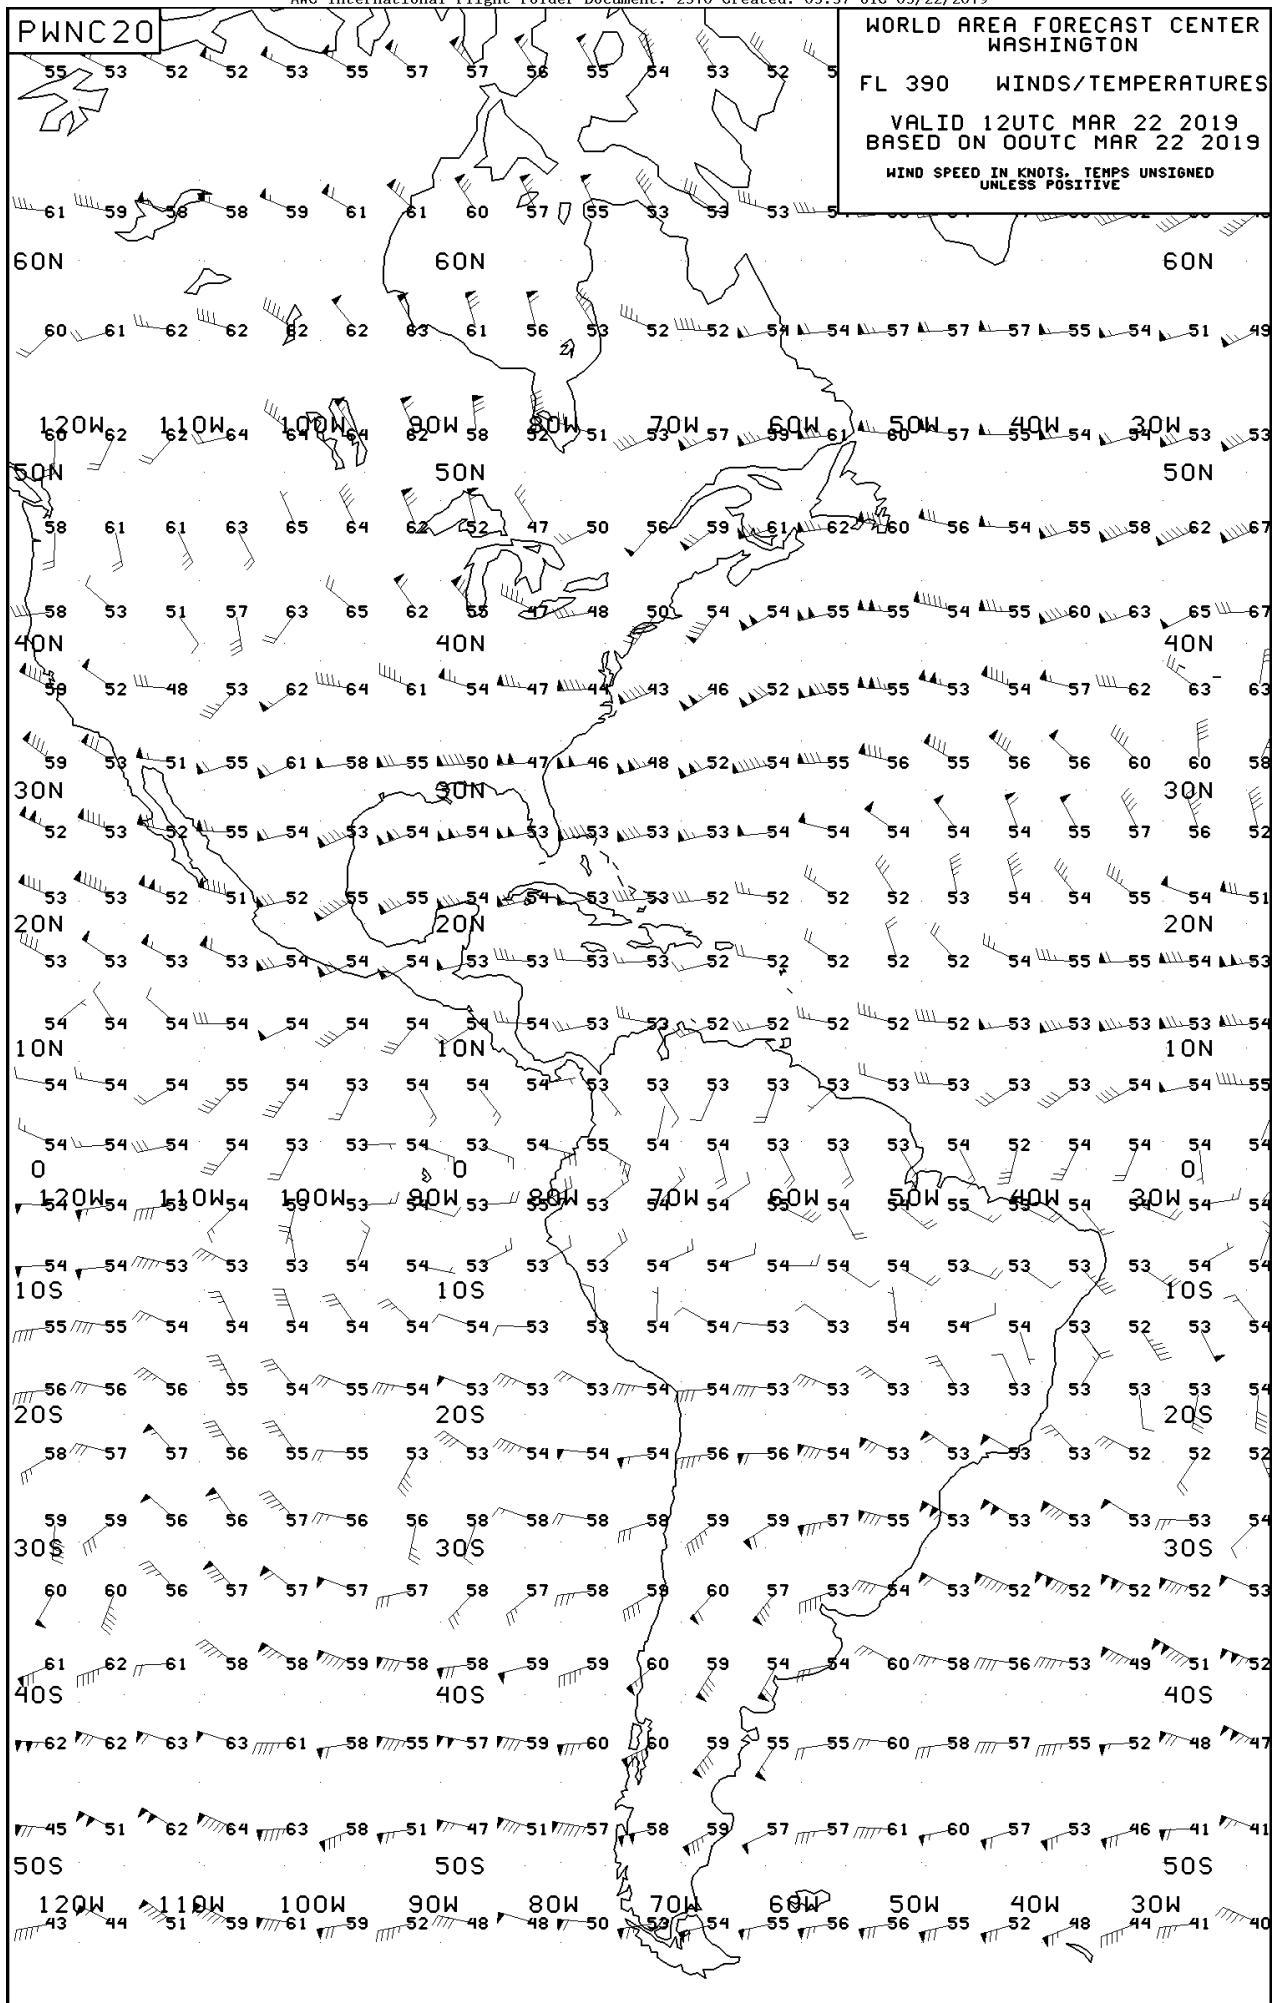 PWNC20
WORLD AREA FORECAST CENTER
WASHINGTON
FL 390 WINDS/TEMPERATURES
VALID 12UTC MAR 22 2019
BASED ON 00UTC MAR 22 2019
WIND SPEED IN KNOTS. TEMPS UNSIGNED
UNLESS POSITIVE
55 53 52 52 53 55 57 57 56 55 54 53 52
61 59 58 58 59 61 61 60 57 55 53 53 53
60N 60N 60N
60 61 62 62 62 62 63 61 56 53 52 52 54 54 57 57 57 55 54 51 49
120W 110W 100W 90W 80W 70W 60W 50W 40W 30W
60 62 62 64 64 64 62 58 52 51 53 57 59 61 60 57 55 54 54 53 53
50N 50N 50N
58 61 61 63 65 64 62 52 47 50 56 59 61 62 60 56 54 55 58 62 67
58 53 51 57 63 65 62 55 47 48 50 54 54 55 55 54 55 60 63 65 67
40N 40N 40N
59 52 48 53 62 64 61 54 47 44 43 46 52 55 55 53 54 57 62 63 63
59 53 51 55 61 58 55 50 47 46 48 52 54 55 56 55 56 56 60 60 58
30N 30N 30N
52 53 52 55 54 53 54 54 53 53 53 53 54 54 54 54 54 55 57 56 52
53 53 52 51 52 55 55 54 54 53 53 52 52 52 52 53 54 54 55 54 51
20N 20N 20N
53 53 53 53 54 54 54 53 53 53 53 52 52 52 52 52 54 55 55 54 53
54 54 54 54 54 54 54 54 54 53 53 52 52 52 52 52 53 53 53 53 54
10N 10N 10N
54 54 54 55 54 53 54 54 54 53 53 53 53 53 53 53 53 53 54 54 55
54 54 54 54 53 53 54 53 54 55 54 54 53 53 53 54 52 54 54 54 54
0 0 0
120W 110W 100W 90W 80W 70W 60W 50W 40W 30W
54 54 53 54 53 53 54 53 55 53 54 54 55 54 54 55 53 54 54 54 54
54 54 53 53 53 54 54 53 53 53 54 54 54 54 54 53 53 53 53 54 54
10S 10S 10S
55 55 54 54 54 54 54 54 53 53 54 54 53 53 54 54 54 53 52 53 54
56 56 56 55 54 55 54 53 53 53 54 54 53 53 53 53 53 53 53 53 54
20S 20S 20S
58 57 57 56 55 55 53 53 54 54 54 56 56 54 53 53 53 53 52 52 52
59 59 56 56 57 56 56 58 58 58 58 59 59 57 55 53 53 53 53 53 54
30S 30S 30S
60 60 56 57 57 57 57 58 57 58 59 60 57 53 54 53 52 52 52 52 53
61 62 61 58 58 59 58 58 59 59 60 59 54 54 60 58 56 53 49 51 52
40S 40S 40S
62 62 63 63 61 58 55 57 59 60 60 59 55 55 60 58 57 55 52 48 47
45 51 62 64 63 58 51 47 51 57 58 59 57 57 61 60 57 53 46 41 41
50S 50S 50S
120W 110W 100W 90W 80W 70W 60W 50W 40W 30W
43 44 51 59 61 59 52 48 48 50 53 54 55 56 56 55 52 48 44 41 40